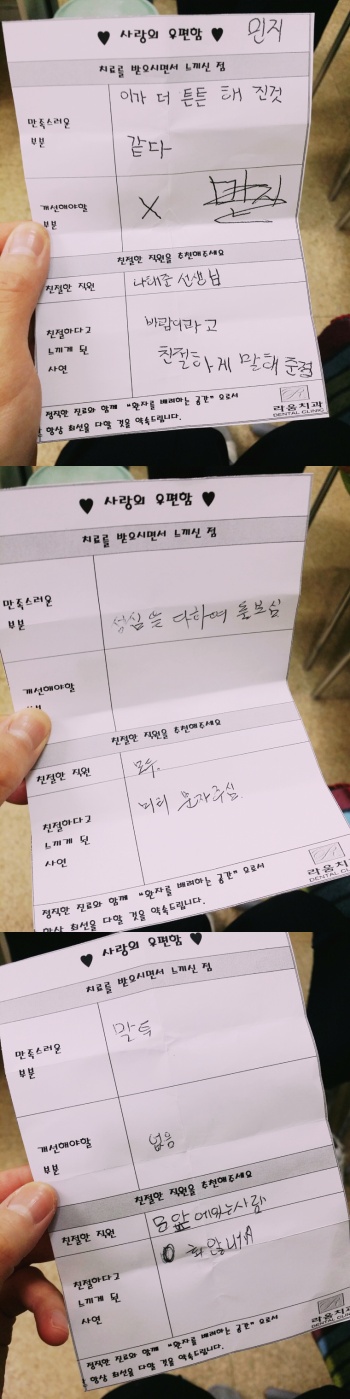 ♥ 사랑의 우편함 ♥ 민지
치료를 받으시면서 느끼신 점
만족스러운
부분
이가 더 튼튼 해 진것
같다
개선해야할
부분
X
친절한 직원을 추천해주세요
친절한 직원
나태준 선생님
친절하다고
느끼게 된
사연
친절하게 말해 준점
정직한 진료와 함께 "환자를 배려하는 공간" 으로서
항상 최선을 다할 것을 약속드립니다.
라움치과
DENTAL CLINIC
♥ 사랑의 우편함 ♥
치료를 받으시면서 느끼신 점
만족스러운
부분
성심을 다하여 돌보심
개선해야할
부분
친절한 직원을 추천해주세요
친절한 직원
모두.
친절하다고
느끼게 된
사연
미리 문자주심.
정직한 진료와 함께 "환자를 배려하는 공간" 으로서
항상 최선을 다할 것을 약속드립니다.
라움치과
DENTAL CLINIC
♥ 사랑의 우편함 ♥
치료를 받으시면서 느끼신 점
만족스러운
부분
말투
개선해야할
부분
없음
친절한 직원을 추천해주세요
친절한 직원
앞에있는사람
친절하다고
느끼게 된
사연
정직한 진료와 함께 "환자를 배려하는 공간" 으로서
항상 최선을 다할 것을 약속드립니다.
라움치과